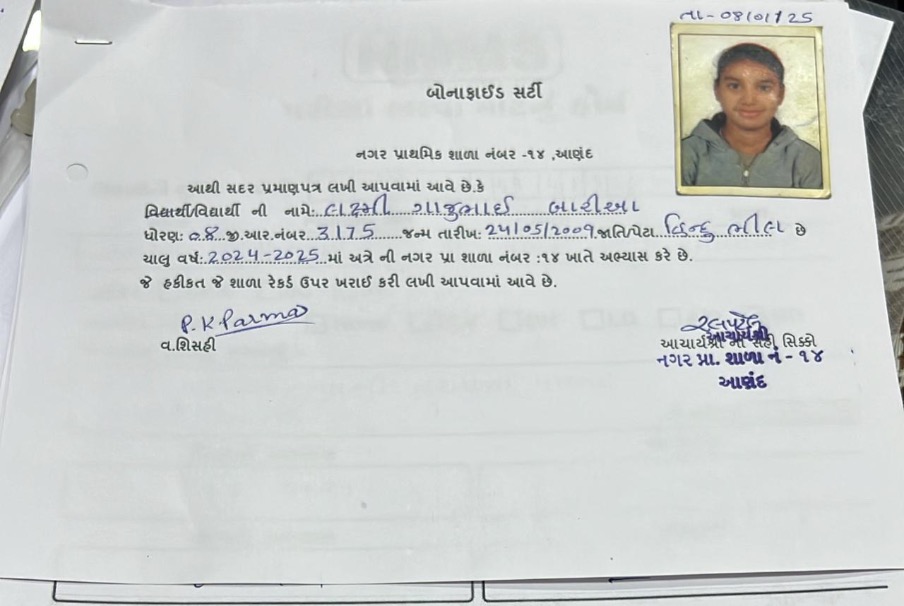 તા-08/01/25
બોનાફાઈડ સર્ટી
નગર પ્રાથમિક શાળા નંબર -૧૪ ,આણંદ
આથી સદર પ્રમાણપત્ર લખી આપવામાં આવે છે.કે
વિદ્યાર્થી/વિદ્યાર્થી ની નામે:. લક્ષ્મી રાજુભાઈ બારીઆ
ધોરણ: ૦8 જી.આર.નંબર 3175 જન્મ તારીખ: 24/05/2009 જાતિ/પેટા હિન્દુ ભીલ છે
ચાલુ વર્ષ: 2024-2025 માં અત્રે ની નગર પ્રા શાળા નંબર :૧૪ ખાતે અભ્યાસ કરે છે.
જે હકીકત જે શાળા રેકર્ડ ઉપર ખરાઈ કરી લખી આપવામાં આવે છે.
P.K Parmar
વ.શિસહી
આચાર્યશ્રી
આચાર્યશ્રી ની સહી સિક્કો
નગર પ્રા. શાળા નં - ૧૪
આણંદ